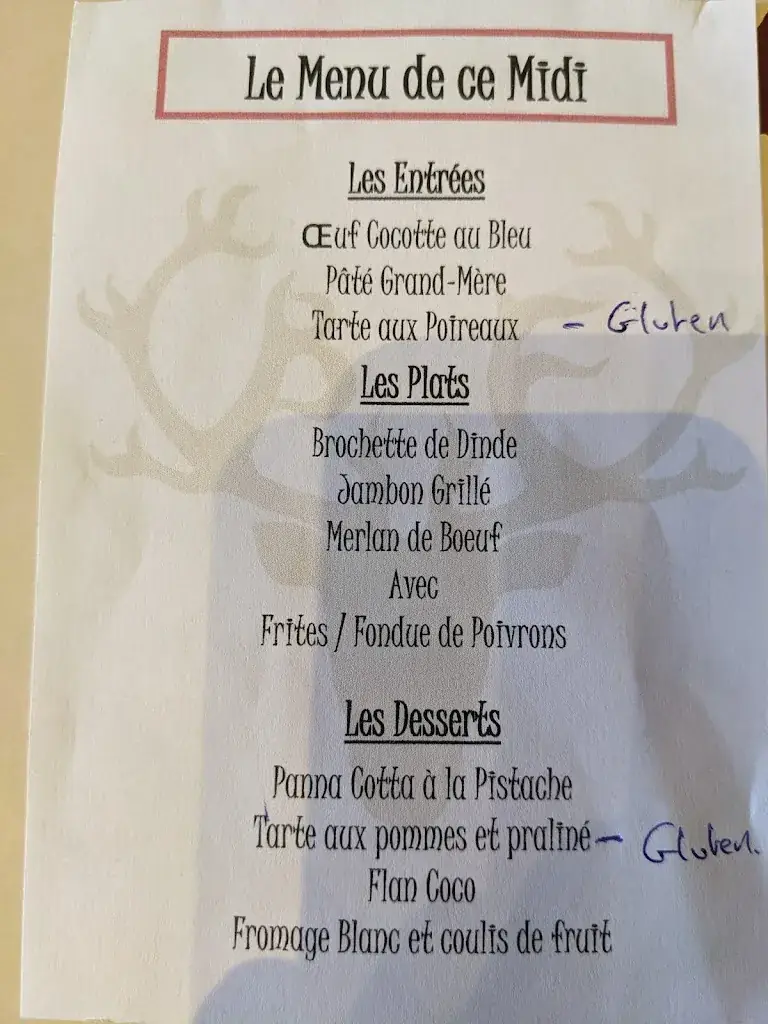 Le Menu de ce Midi
Les Entrées
Œuf Cocotte au Bleu
Pâté Grand-Mère
Tarte aux Poireaux – Gluten
Les Plats
Brochette de Dinde
Jambon Grillé
Merlan de Boeuf
Avec
Frites / Fondue de Poivrons
Les Desserts
Panna Cotta à la Pistache
Tarte aux pommes et praliné – Gluten.
Flan Coco
Fromage Blanc et coulis de fruit